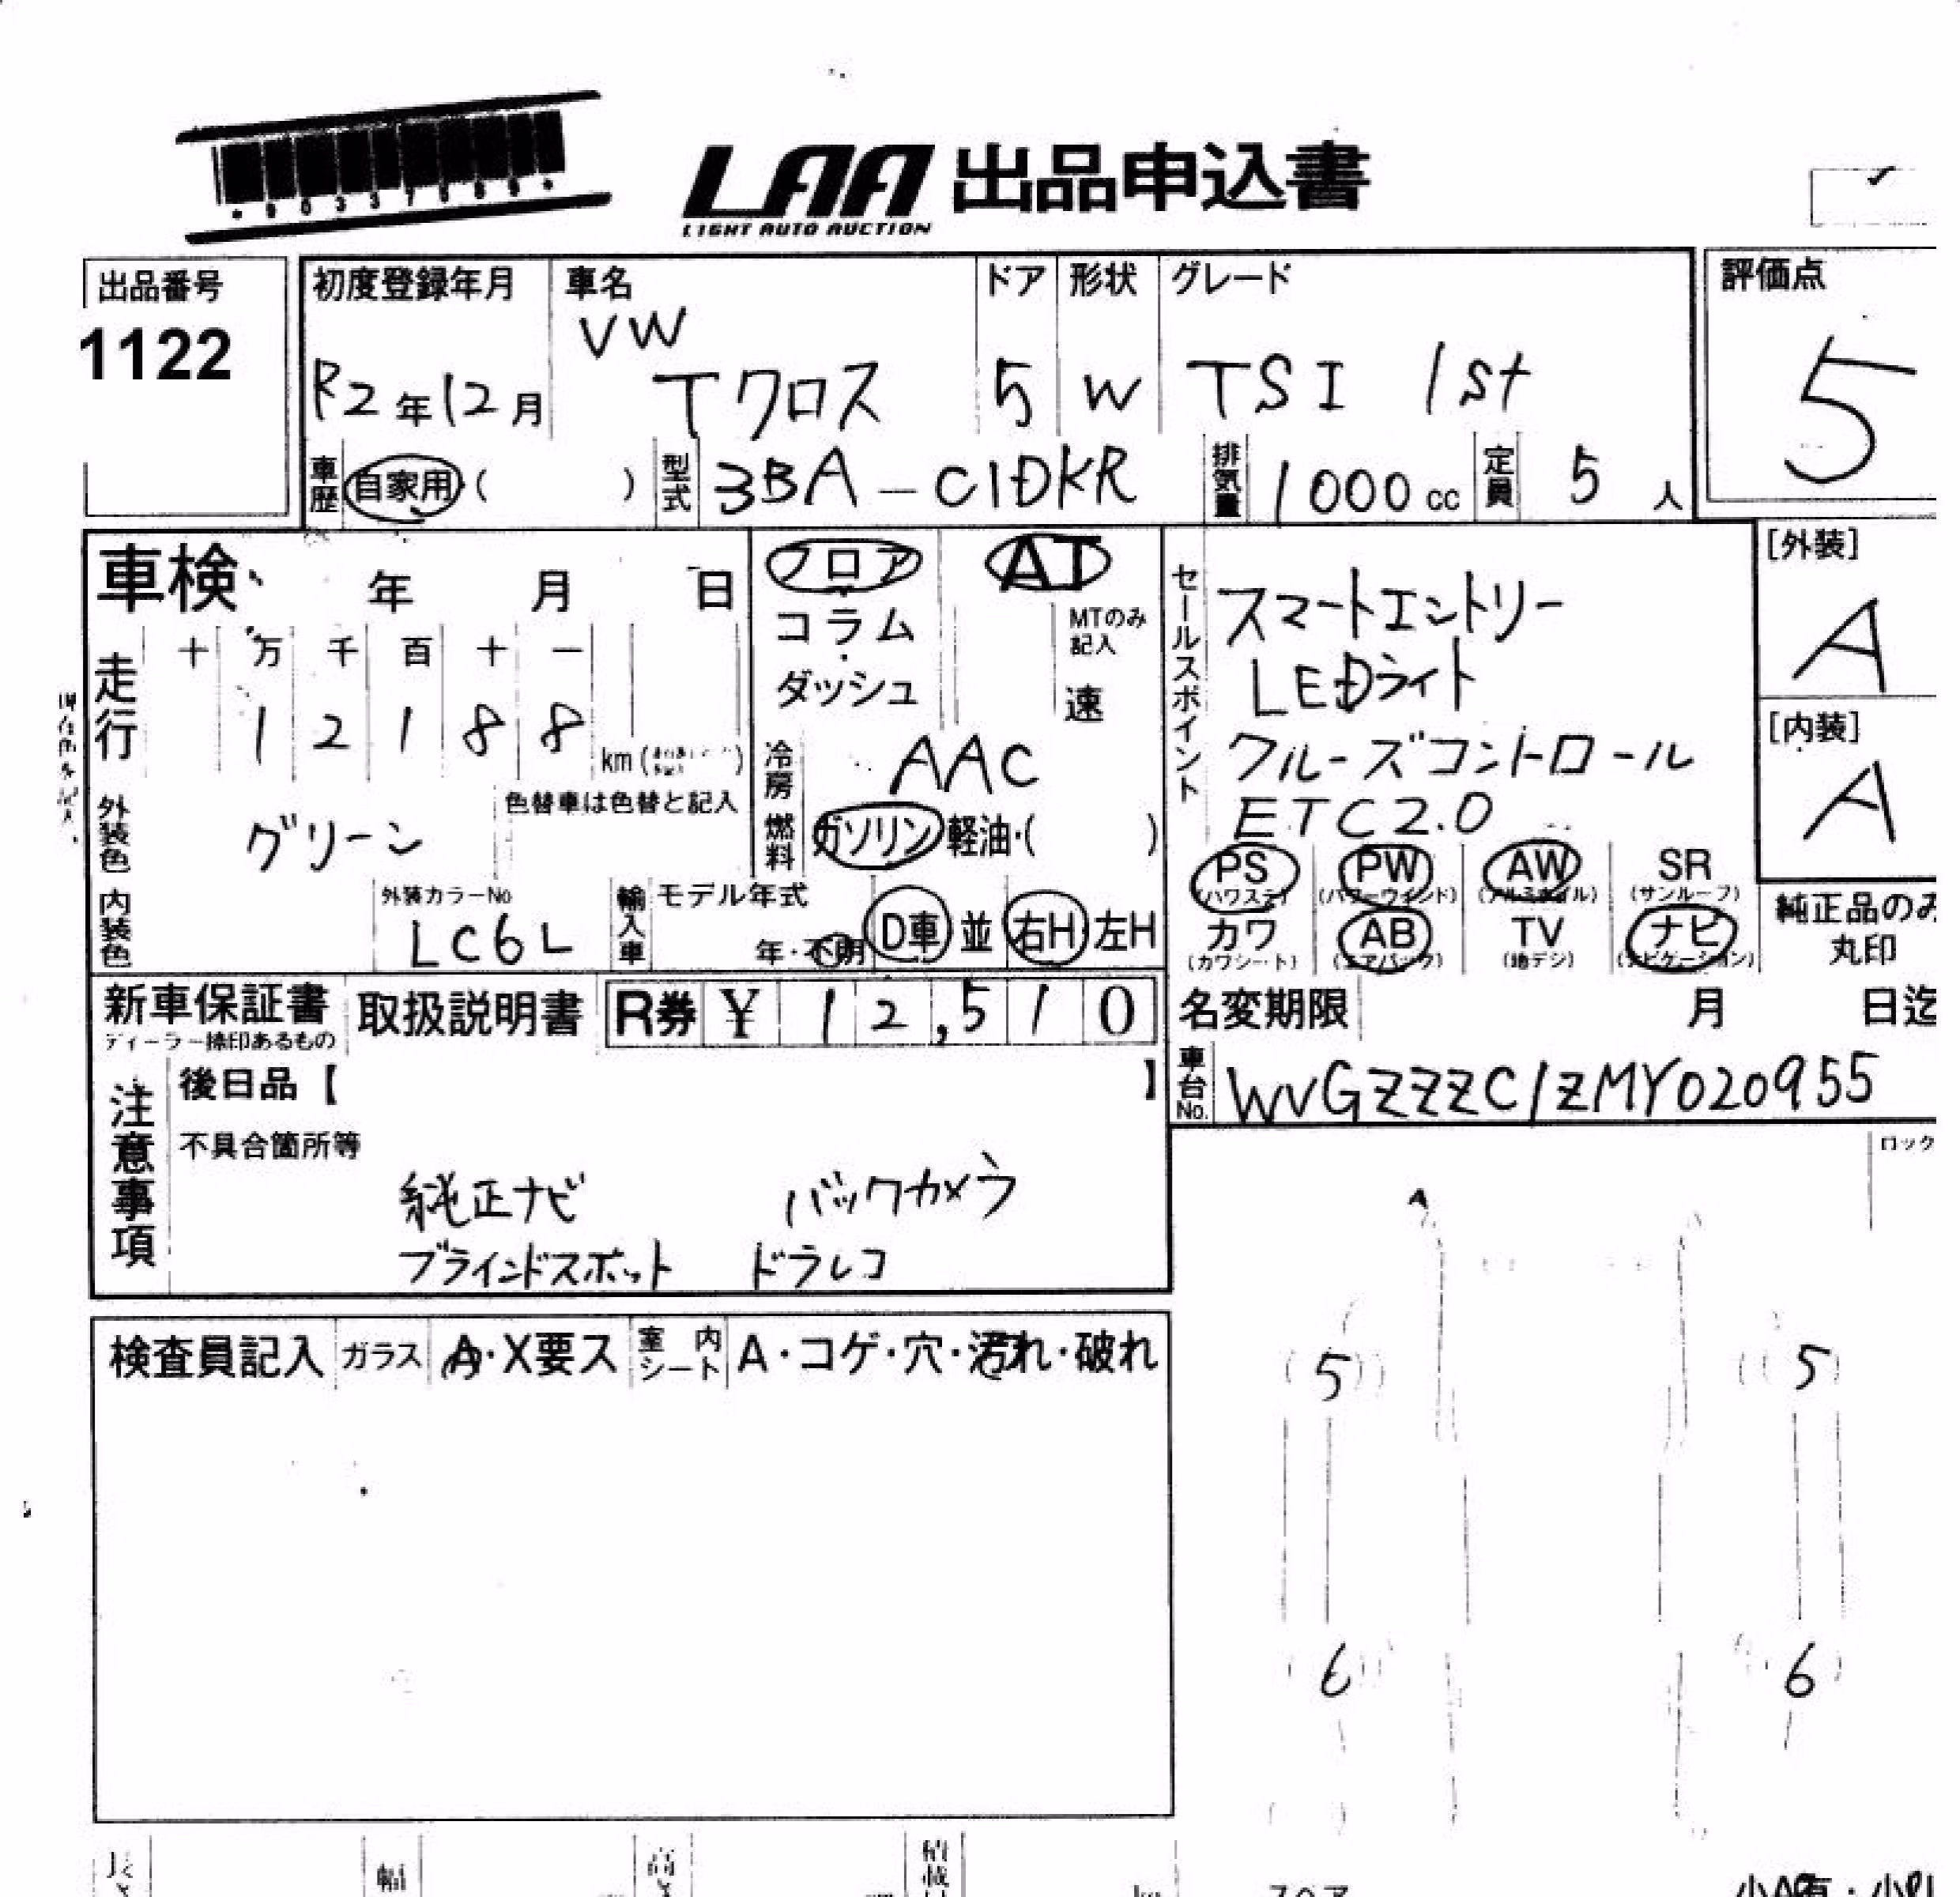 LAA 出品申込書
LIGHT AUTO AUCTION
出品番号
1122
初度登録年月
R2年12月
車名
VW
Tクロス
ドア
5
形状
W
グレード
TSI 1st
評価点
5
車歴 自家用 ( )
型式 3BA-C1DKR
排気量 1000cc
定員 5人
車検 年 月 日
走行
十 万 千 百 十 一
1 2 1 8 8 km
色替車は色替と記入
外装色 グリーン
内装色
外装カラーNo
LC6L
フロア
コラム
ダッシュ
AT
MTのみ記入
速
冷房 AAC
燃料 ガソリン 軽油・( )
輸入車
モデル年式
年・不明
D車 並
右H・左H
セールスポイント
スマートエントリー
LEDライト
クルーズコントロール
ETC2.0
PS PW AW SR
(パワステ) (パワーウインド) (アルミホイル) (サンルーフ)
カワ AB TV ナビ
(カワシート) (エアバック) (地デジ) (ナビゲーション)
[外装]
A
[内装]
A
純正品のみ
丸印
新車保証書
ディーラー捺印あるもの
取扱説明書
R券 ¥ 12,510
名変期限 月 日迄
車台No. WVGZZZC1ZMY020955
注意事項
後日品【 】
不具合箇所等
純正ナビ バックカメラ
ブラインドスポット ドラレコ
ロック
A
5 5
6 6
検査員記入 ガラス A・X要ス 室内シート A・コゲ・穴・汚れ・破れ
幅 高